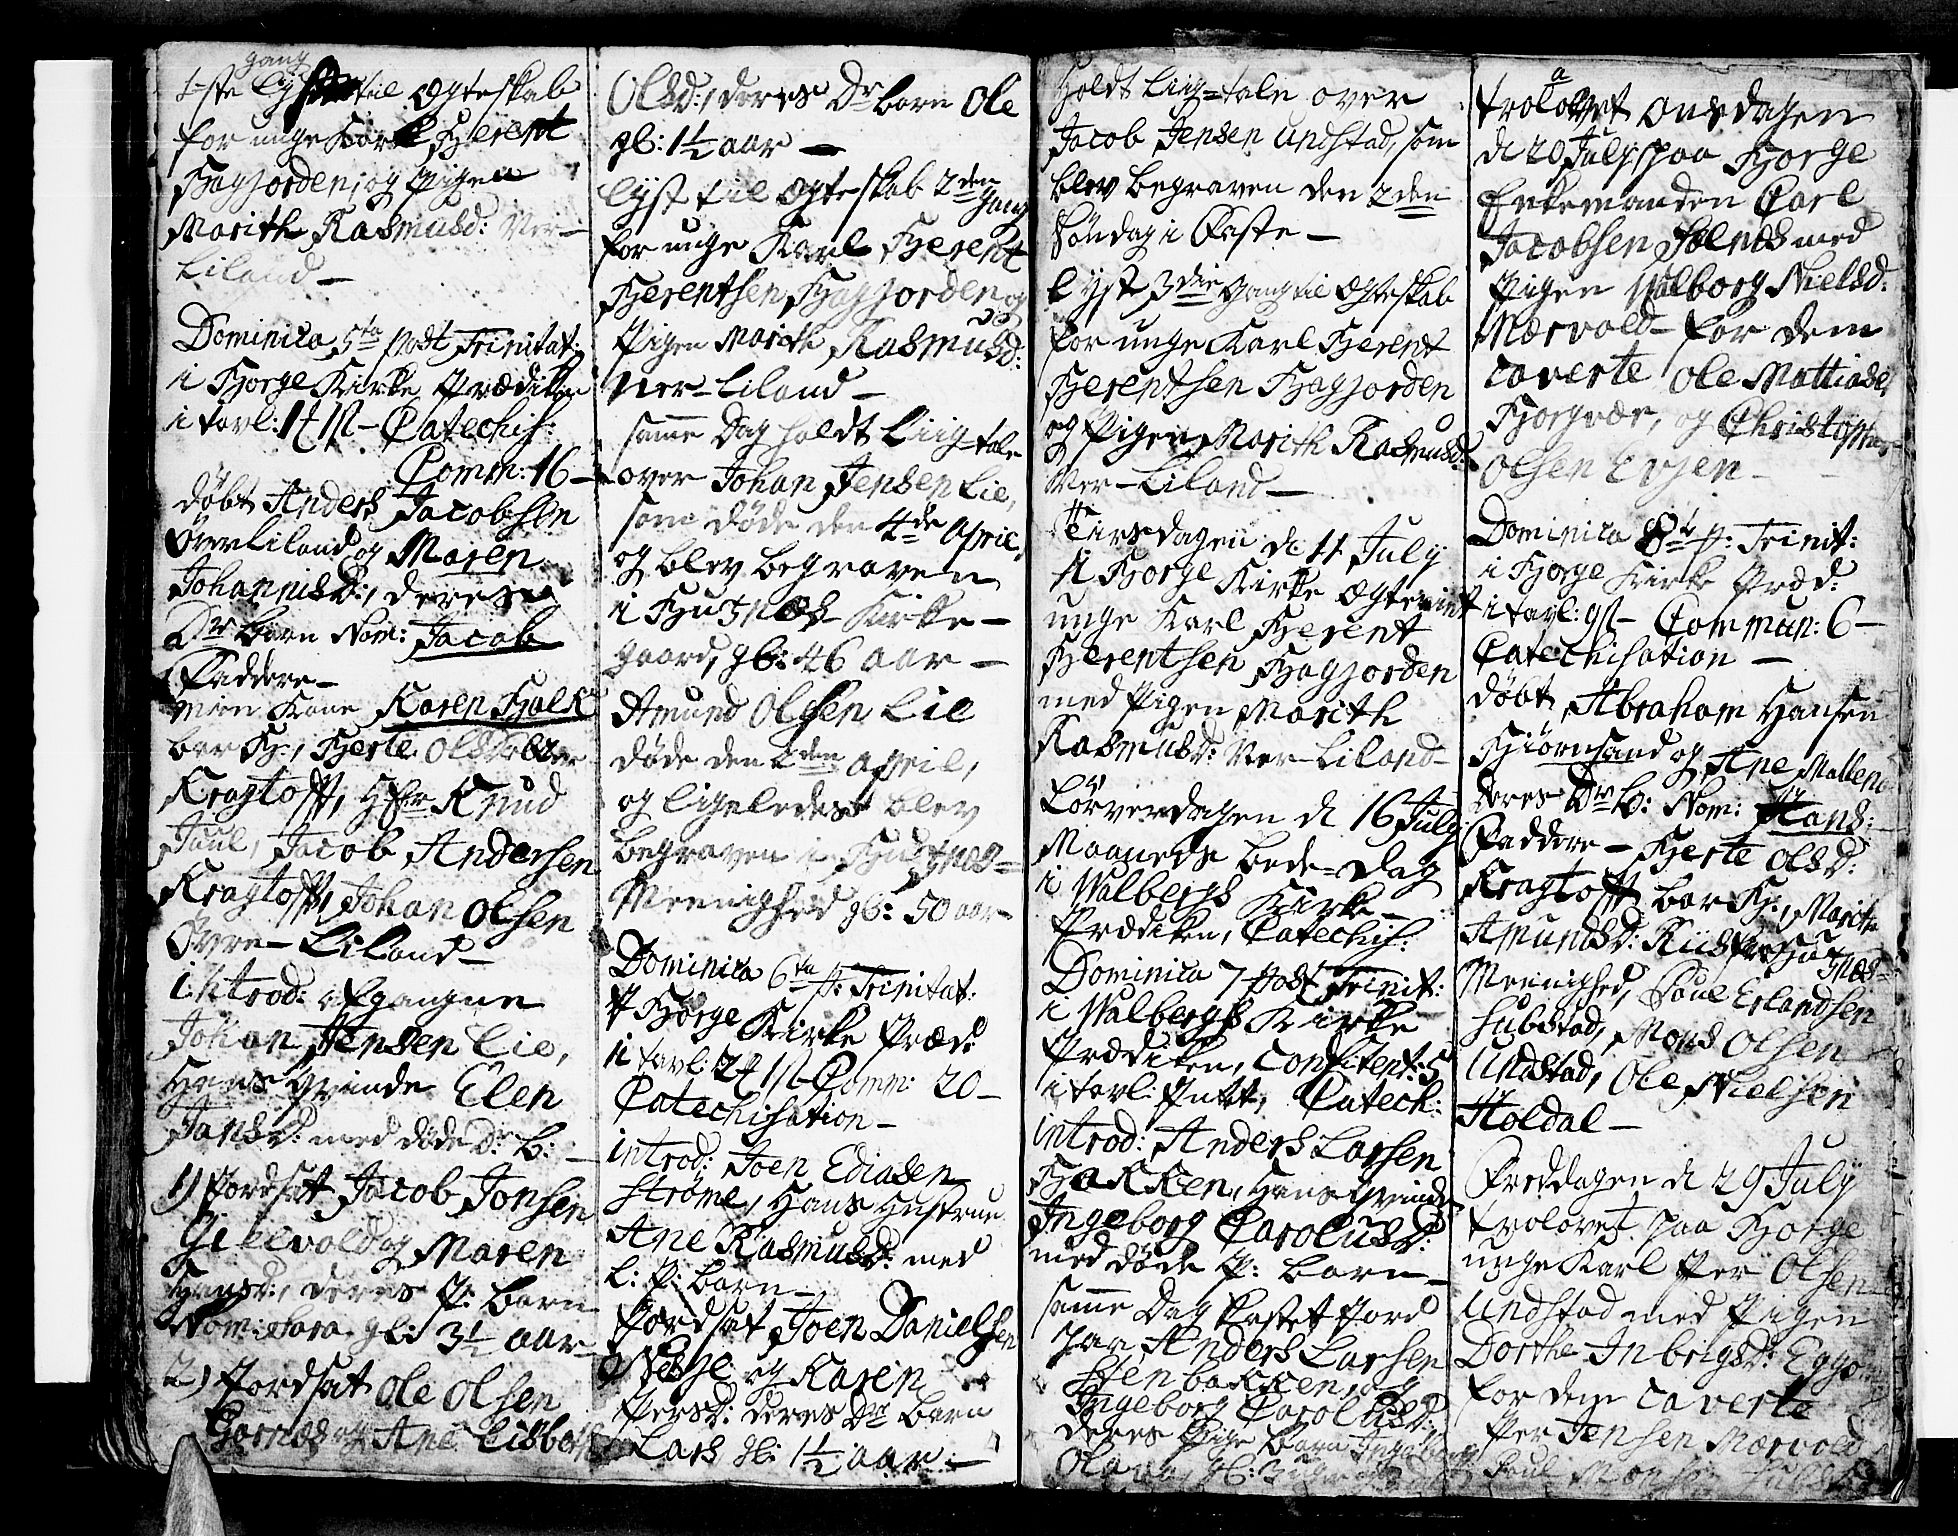 gang
1-ste lyst til Ægteskab
for unge Karl Gierent
Hagjorden, og Pigen
Marith Rasmusd: Ner-
Liland-
Dominica 5ta post Trinitat:
i Borge Kirke Prædiken
i tavl: Catechis:
Comm: 16-
døbt Anders Jacobsen
Øver Liland og Maren
Johannisd:, deres
Dr. barn Nom: Jacob
Faddere-
min Kone Karen Falk
bar B:, Berte Olsd:
Kragtoft, Knud
Juul, Jacob Andersen
Kragtoft, Johan Olsen
Øvre-Liland-
introd: afgangne
Johan Jensen Lie,
Hans Qvinde Elen
Jansd: med døde Dr. b:-
1) Jordsat Jacob Jonsen
og Maren
Hansd:, deres P: barn
Nom: Sara gl: 3½ aar-
2) Jordsat Ole Olsen
og Ane Lisbeth
Olsd:, deres Dr. barn Ole
gl: 1½ aar-
lyst til Ægteskab 2den Gang
for unge Karl Gierent
Gierentsen Hagjorden og
Pigen Marith Rasmusd:
Ner-Liland-
samme Dag holdt Liigtale
over Johan Jensen Lie,
som døde den 4de April,
og blev begraven
i Buxnæs Kirke-
gaard, gl: 46 aar-
Amund Olsen Lie
døde den 2den April,
og ligeledes blev
begraven i Buxnæs-
Meenighed gl: 50 aar-
Dominica 6ta p: Trinitat:
i Borge Kirke Præd:
i tavl: Comm: 20-
Catechisation-
introd: Joen Ediasen
Strøme, Hans Hustrue
Ane Rasmusd: med
l: P: barn-
Jordsat Joen Danielsen
og Karen
Persd: deres Dr. barn
Lars gl: 1½ aar-
Holdt Liig-tale over
Jacob Jensen Undstad, som
blev begraven den 2den
Søndag i Faste-
lyst 3die Gang til Ægteskab
for unge Karl Gierent
Gierentsen Hagjorden
og Pigen Marith Rasmusd:
Ner-Liland-
Tirsdagen d 11 July
i Borge Kirke Ægteviet
unge Karl Gierent
Gierentsen Hagjorden
med Pigen Marith
Rasmusd: Ner-Liland-
Løverdagen d 16 July
Maaneds bede-Dag
i Walbergs Kirke-
Prædiken, Catechis:
Dominica 7 post Trinit:
i Walbergs Kirke
Prædiken, Confitent: 5
i tavl: Catech:
introd: Anders Larsen
Bakken, Hans Qvinde
Ingeborg Carolusd:
med døde P: barn-
samme Dag kastet Jord
paa Anders Larsen
Stenbakken, og
Ingeborg Carolusd:
deres Pige barn
trolovet Onsdagen
d 20 July paa Borge
Enkemanden Carl
Jacobsen Sølnes med
Pigen Walborg Nielsd:
Mærvold- for dem
caverte Ole Mattiasen
Borgvær, og Christopher
Olsen Evjen-
Dominica 8de p: Trinit:
i Borge Kirke Præd:
i tavl: Commun: 6-
Catechisation-
døbt Abraham Hansen
Biørnsand og Ane
deres Dr. b: Nom: Hans:
Faddere- Berte Olsd:
Kragtoft bar B:, Marite
Amundsd: Buxnæs-
Meenighed, Poul Erlandsen
Substad, Mons Olsen
Undstad, Ole Nielsen
Holdal-
Fredagen d 29 July
trolovet paa Borge
unge Karl Per Olsen
Undstad med Pigen
Dorthe Inbrigsd: Eggo
for dem caverte
Per Jensen Mærvold
Poul